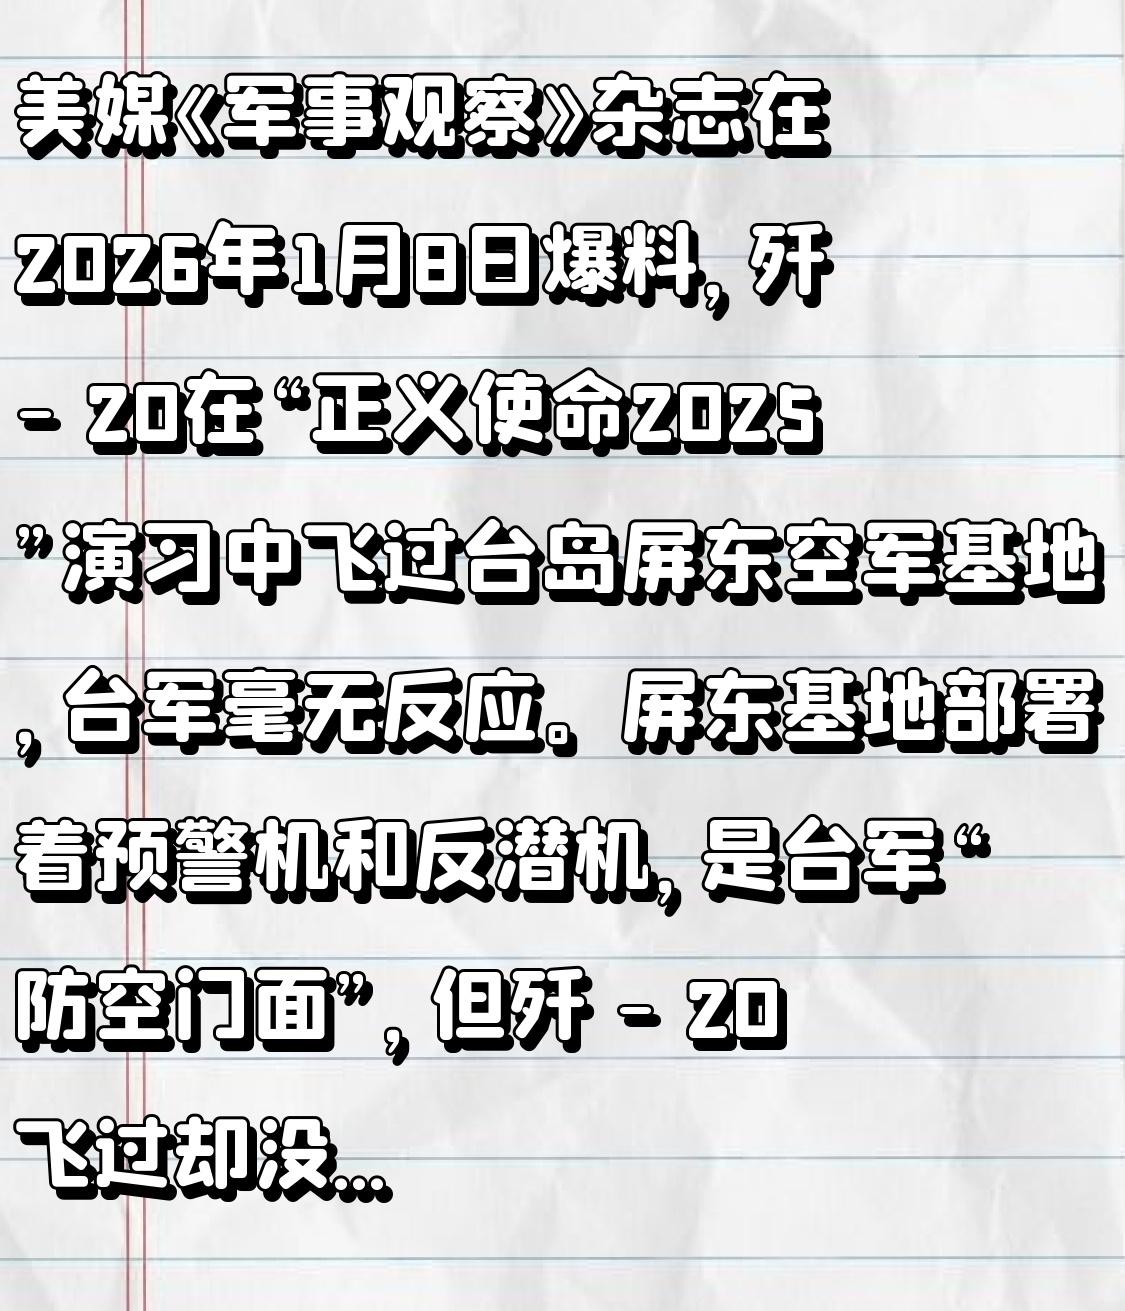 美媒《军事观察》杂志在
2026年1月8日爆料，歼
- 20在“正义使命2025
”演习中飞过台岛屏东空军基地
，台军毫无反应。屏东基地部署
着预警机和反潜机，是台军“
防空门面”，但歼 - 20
飞过却没...